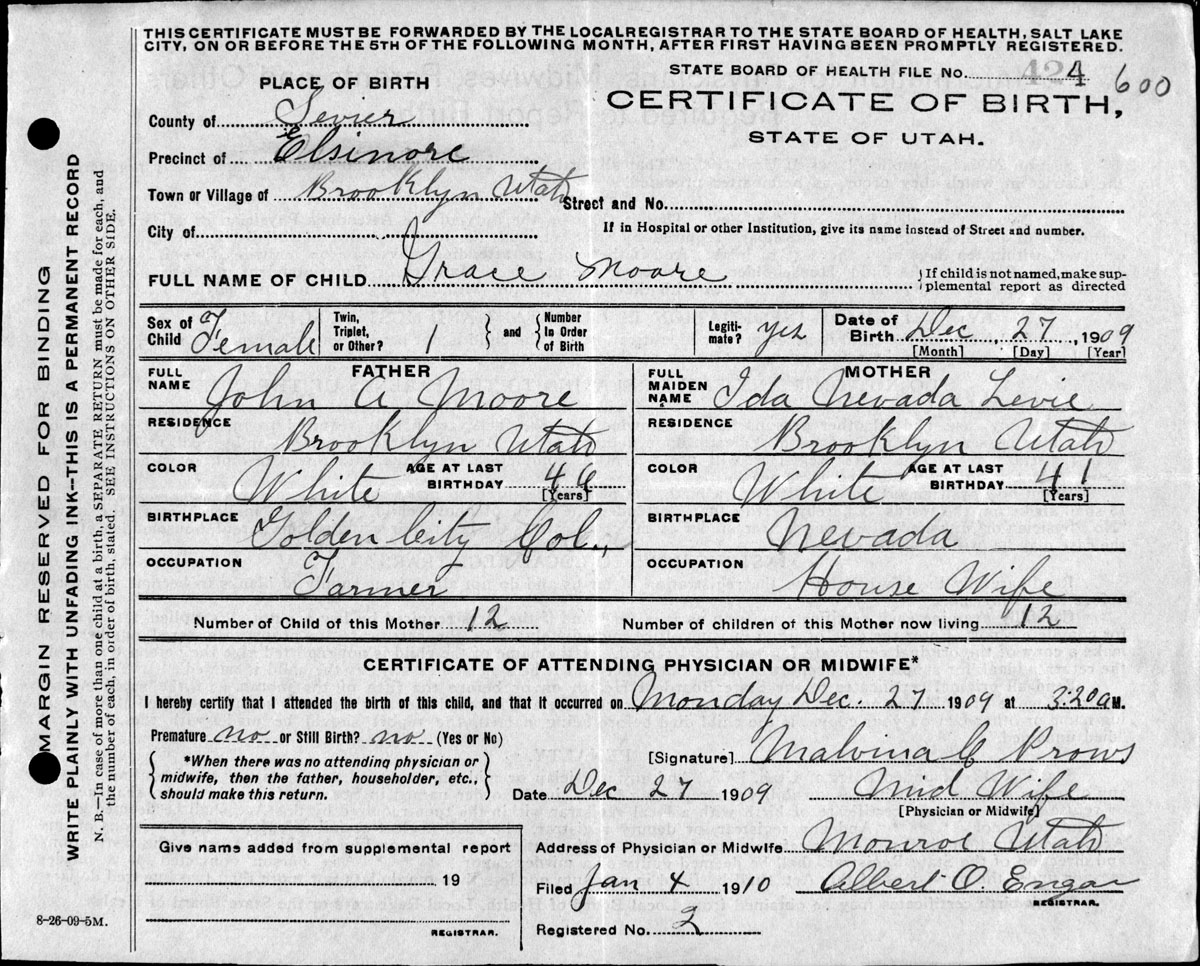 THIS CERTIFICATE MUST BE FORWARDED BY THE LOCAL REGISTRAR TO THE STATE BOARD OF HEALTH, SALT LAKE
CITY, ON OR BEFORE THE 5TH OF THE FOLLOWING MONTH, AFTER FIRST HAVING BEEN PROMPTLY REGISTERED.
STATE BOARD OF HEALTH FILE No. 424 4 600
PLACE OF BIRTH
CERTIFICATE OF BIRTH,
STATE OF UTAH.
County of Sevier
Precinct of Elsinore
Town or Village of Brooklyn Utah Street and No.
City of
If in Hospital or other Institution, give its name instead of Street and number.
FULL NAME OF CHILD Grace Moore
If child is not named, make sup-
plemental report as directed
Sex of Child Female Twin, Triplet, or Other? 1 and Number In Order of Birth Legiti-mate? yes Date of Birth Dec 27, 1909
[Month] [Day] [Year]
FATHER
FULL NAME John A Moore
RESIDENCE Brooklyn Utah
COLOR White AGE AT LAST BIRTHDAY 46 [Years]
BIRTHPLACE Golden City Col.,
OCCUPATION Farmer
MOTHER
FULL MAIDEN NAME Ida Nevada Levie
RESIDENCE Brooklyn Utah
COLOR White AGE AT LAST BIRTHDAY 41 [Years]
BIRTHPLACE Nevada
OCCUPATION House Wife
Number of Child of this Mother 12 Number of children of this Mother now living 12
CERTIFICATE OF ATTENDING PHYSICIAN OR MIDWIFE*
I hereby certify that I attended the birth of this child, and that it occurred on Monday Dec. 27 1909 at 3:20 a M.
Premature no or Still Birth? no (Yes or No)
*When there was no attending physician or
midwife, then the father, householder, etc.,
should make this return.
[Signature] Malvina C Prows
Date Dec 27 1909 Mid Wife
[Physician or Midwife]
Give name added from supplemental report
19
REGISTRAR.
Address of Physician or Midwife Monroe Utah
Filed Jan 4 1910 Albert O.
REGISTRAR.
Registered No. 2
8-26-09-5M.
MARGIN RESERVED FOR BINDING
WRITE PLAINLY WITH UNFADING INK—THIS IS A PERMANENT RECORD
N. B.—In case of more than one child at a birth, a SEPARATE RETURN must be made for each, and
the number of each, in order of birth, stated. SEE INSTRUCTIONS ON OTHER SIDE.